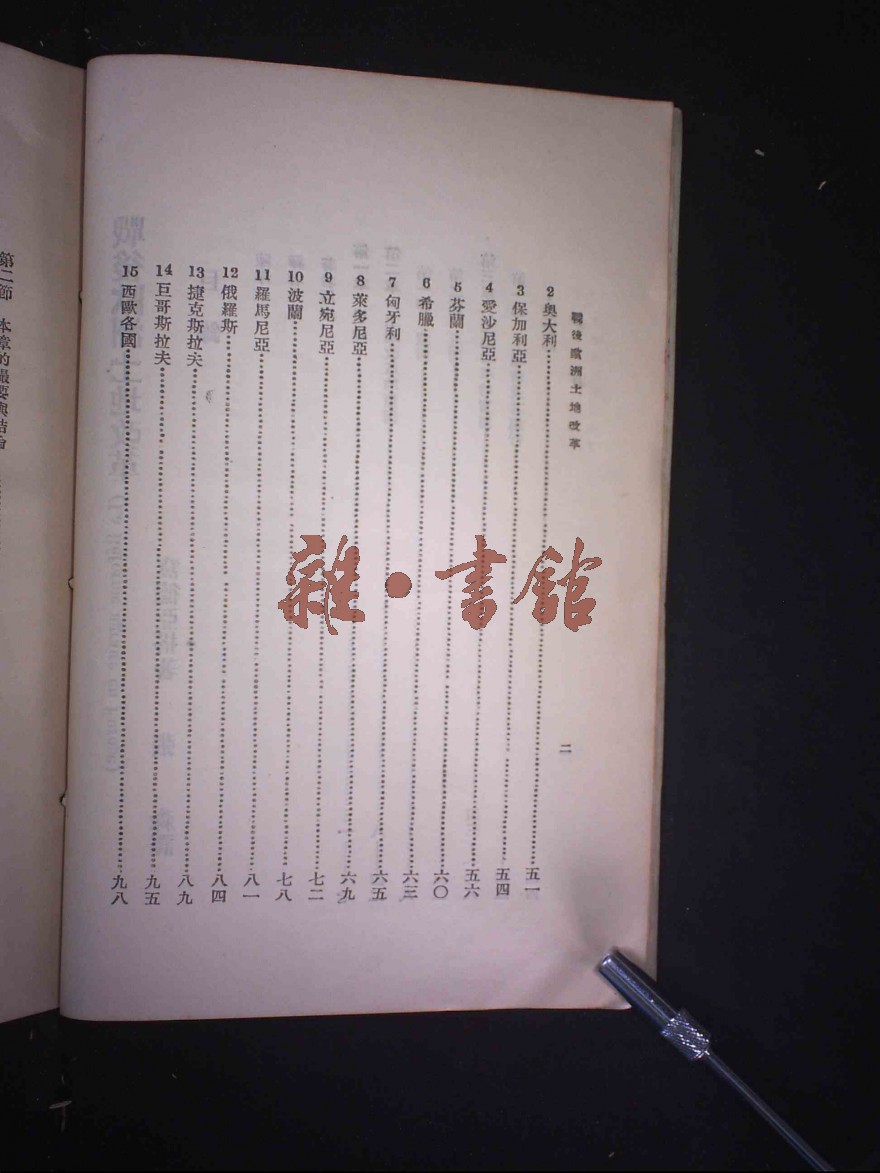 戰後歐洲土地改革
二
2 奧大利……五一
3 保加利亞……五四
4 愛沙尼亞……五六
5 芬蘭……六〇
6 希臘……六三
7 匈牙利……六五
8 萊多尼亞……六九
9 立宛尼亞……七二
10 波蘭……七八
11 羅馬尼亞……八一
12 俄羅斯……八四
13 捷克斯拉夫……八九
14 巨哥斯拉夫……九五
15 西歐各國……九八
第二節 本章的最要與結
雜·書館